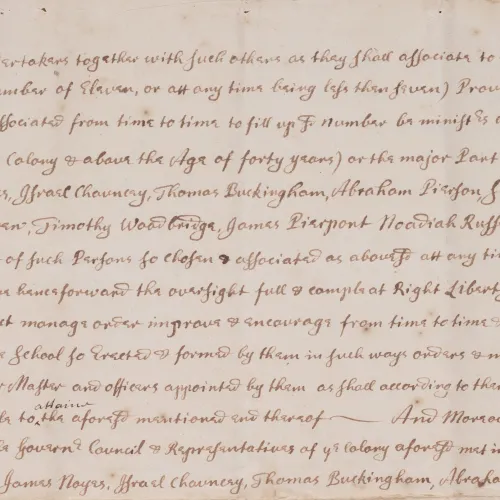 dertakers together with such others as they shall associate to
umber of Eleven, or att any time being less then seven) Prov
ssociated from time to time to fill up sd number be ministers
Colony & above the Age of forty years) or the major Part
es, Israel Chauncey, Thomas Buckingham, Abraham Pierson, S
en, Timothy Woodbridge, James Pierpont Noadiah Russ
of such Persons so chosen & associated as abovesd att any ti
e henceforward the oversight full & compleat Right Liberty
ct manage order improve & encourage from time to time &
e School so Erected & formed by them in such ways orders & m
r Master and officers appointed by them as shall according to thei
le to attaine the aforesd mentioned end thereof — And Moreo
e Govern.t Council & Representatives of ye Colony aforesd met in
James Noyes, Israel Chauncey, Thomas Buckingham, Abrah